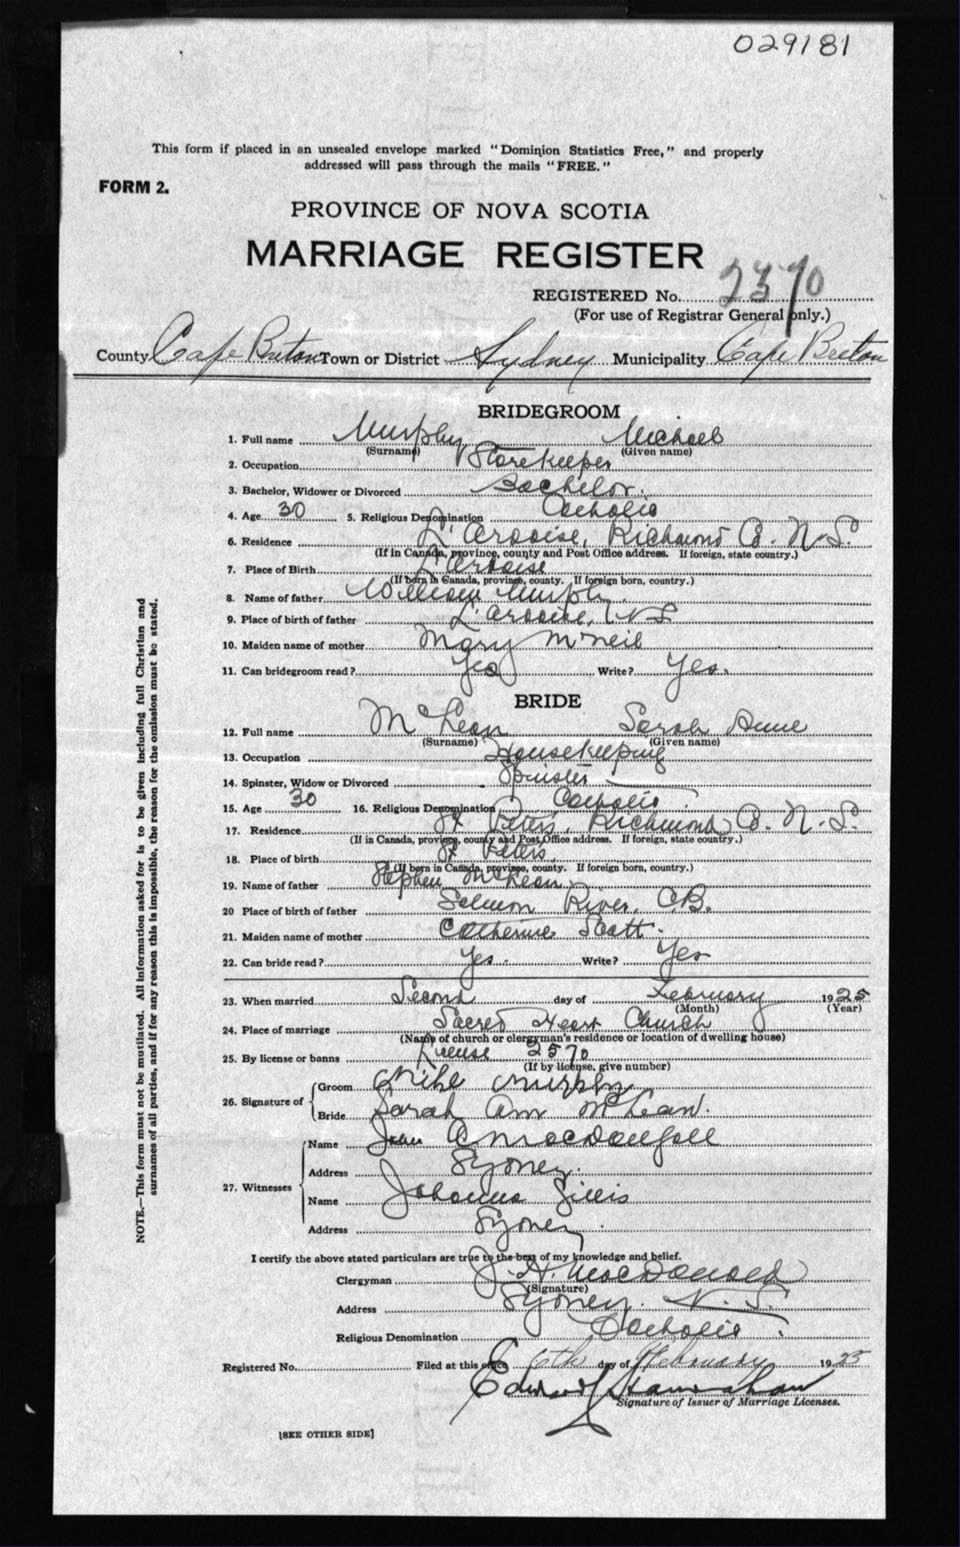 029181
This form if placed in an unsealed envelope marked "Dominion Statistics Free," and properly
addressed will pass through the mails "FREE."
FORM 2.
PROVINCE OF NOVA SCOTIA
MARRIAGE REGISTER
REGISTERED No. 2370
(For use of Registrar General only.)
County Cape Breton Town or District Sydney Municipality Cape Breton
BRIDEGROOM
1. Full name Murphy Michael
(Surname) (Given name)
2. Occupation Storekeeper
3. Bachelor, Widower or Divorced Bachelor.
4. Age 30 5. Religious Denomination Catholic
6. Residence L'Ardoise, Richmond Co. N.S.
(If in Canada, province, county and Post Office address. If foreign, state country.)
7. Place of Birth L'Ardoise
(If born in Canada, province, county. If foreign born, country.)
8. Name of father William Murphy.
9. Place of birth of father L'Ardoise, N S
10. Maiden name of mother Mary McNeil
11. Can bridegroom read? Yes Write? Yes.
BRIDE
12. Full name McLean Sarah Anne
(Surname) (Given name)
13. Occupation Housekeeping
14. Spinster, Widow or Divorced Spinster
15. Age 30 16. Religious Denomination Catholic.
17. Residence St Peters, Richmond Co. N.S.
(If in Canada, province, county and Post Office address. If foreign, state country.)
18. Place of birth St Peters,
(If born in Canada, province, county. If foreign born, country.)
19. Name of father Stephen McLean
20 Place of birth of father Salmon River, C.B.
21. Maiden name of mother Catherine Scott.
22. Can bride read? Yes. Write? Yes
23. When married Second day of February 1925
(Month) (Year)
24. Place of marriage Sacred Heart Church
(Name of church or clergyman's residence or location of dwelling house)
25. By license or banns License 2570
(If by license, give number)
26. Signature of Groom Mike Murphy
Bride Sarah Ann McLean.
27. Witnesses Name MacDougall
Address Sydney.
Name Johanna Gillis
Address Sydney.
I certify the above stated particulars are true to the best of my knowledge and belief.
Clergyman J. H. MacDonald
(Signature)
Address Sydney. N.S.
Religious Denomination Catholic.
Registered No. Filed at this office 6th day of February 1925
Edward
Signature of Issuer of Marriage Licenses.
[SEE OTHER SIDE]
NOTE.—This form must not be mutilated. All information asked for is to be given including full Christian and
surnames of all parties, and if for any reason this is impossible, the reason for the omission must be stated.